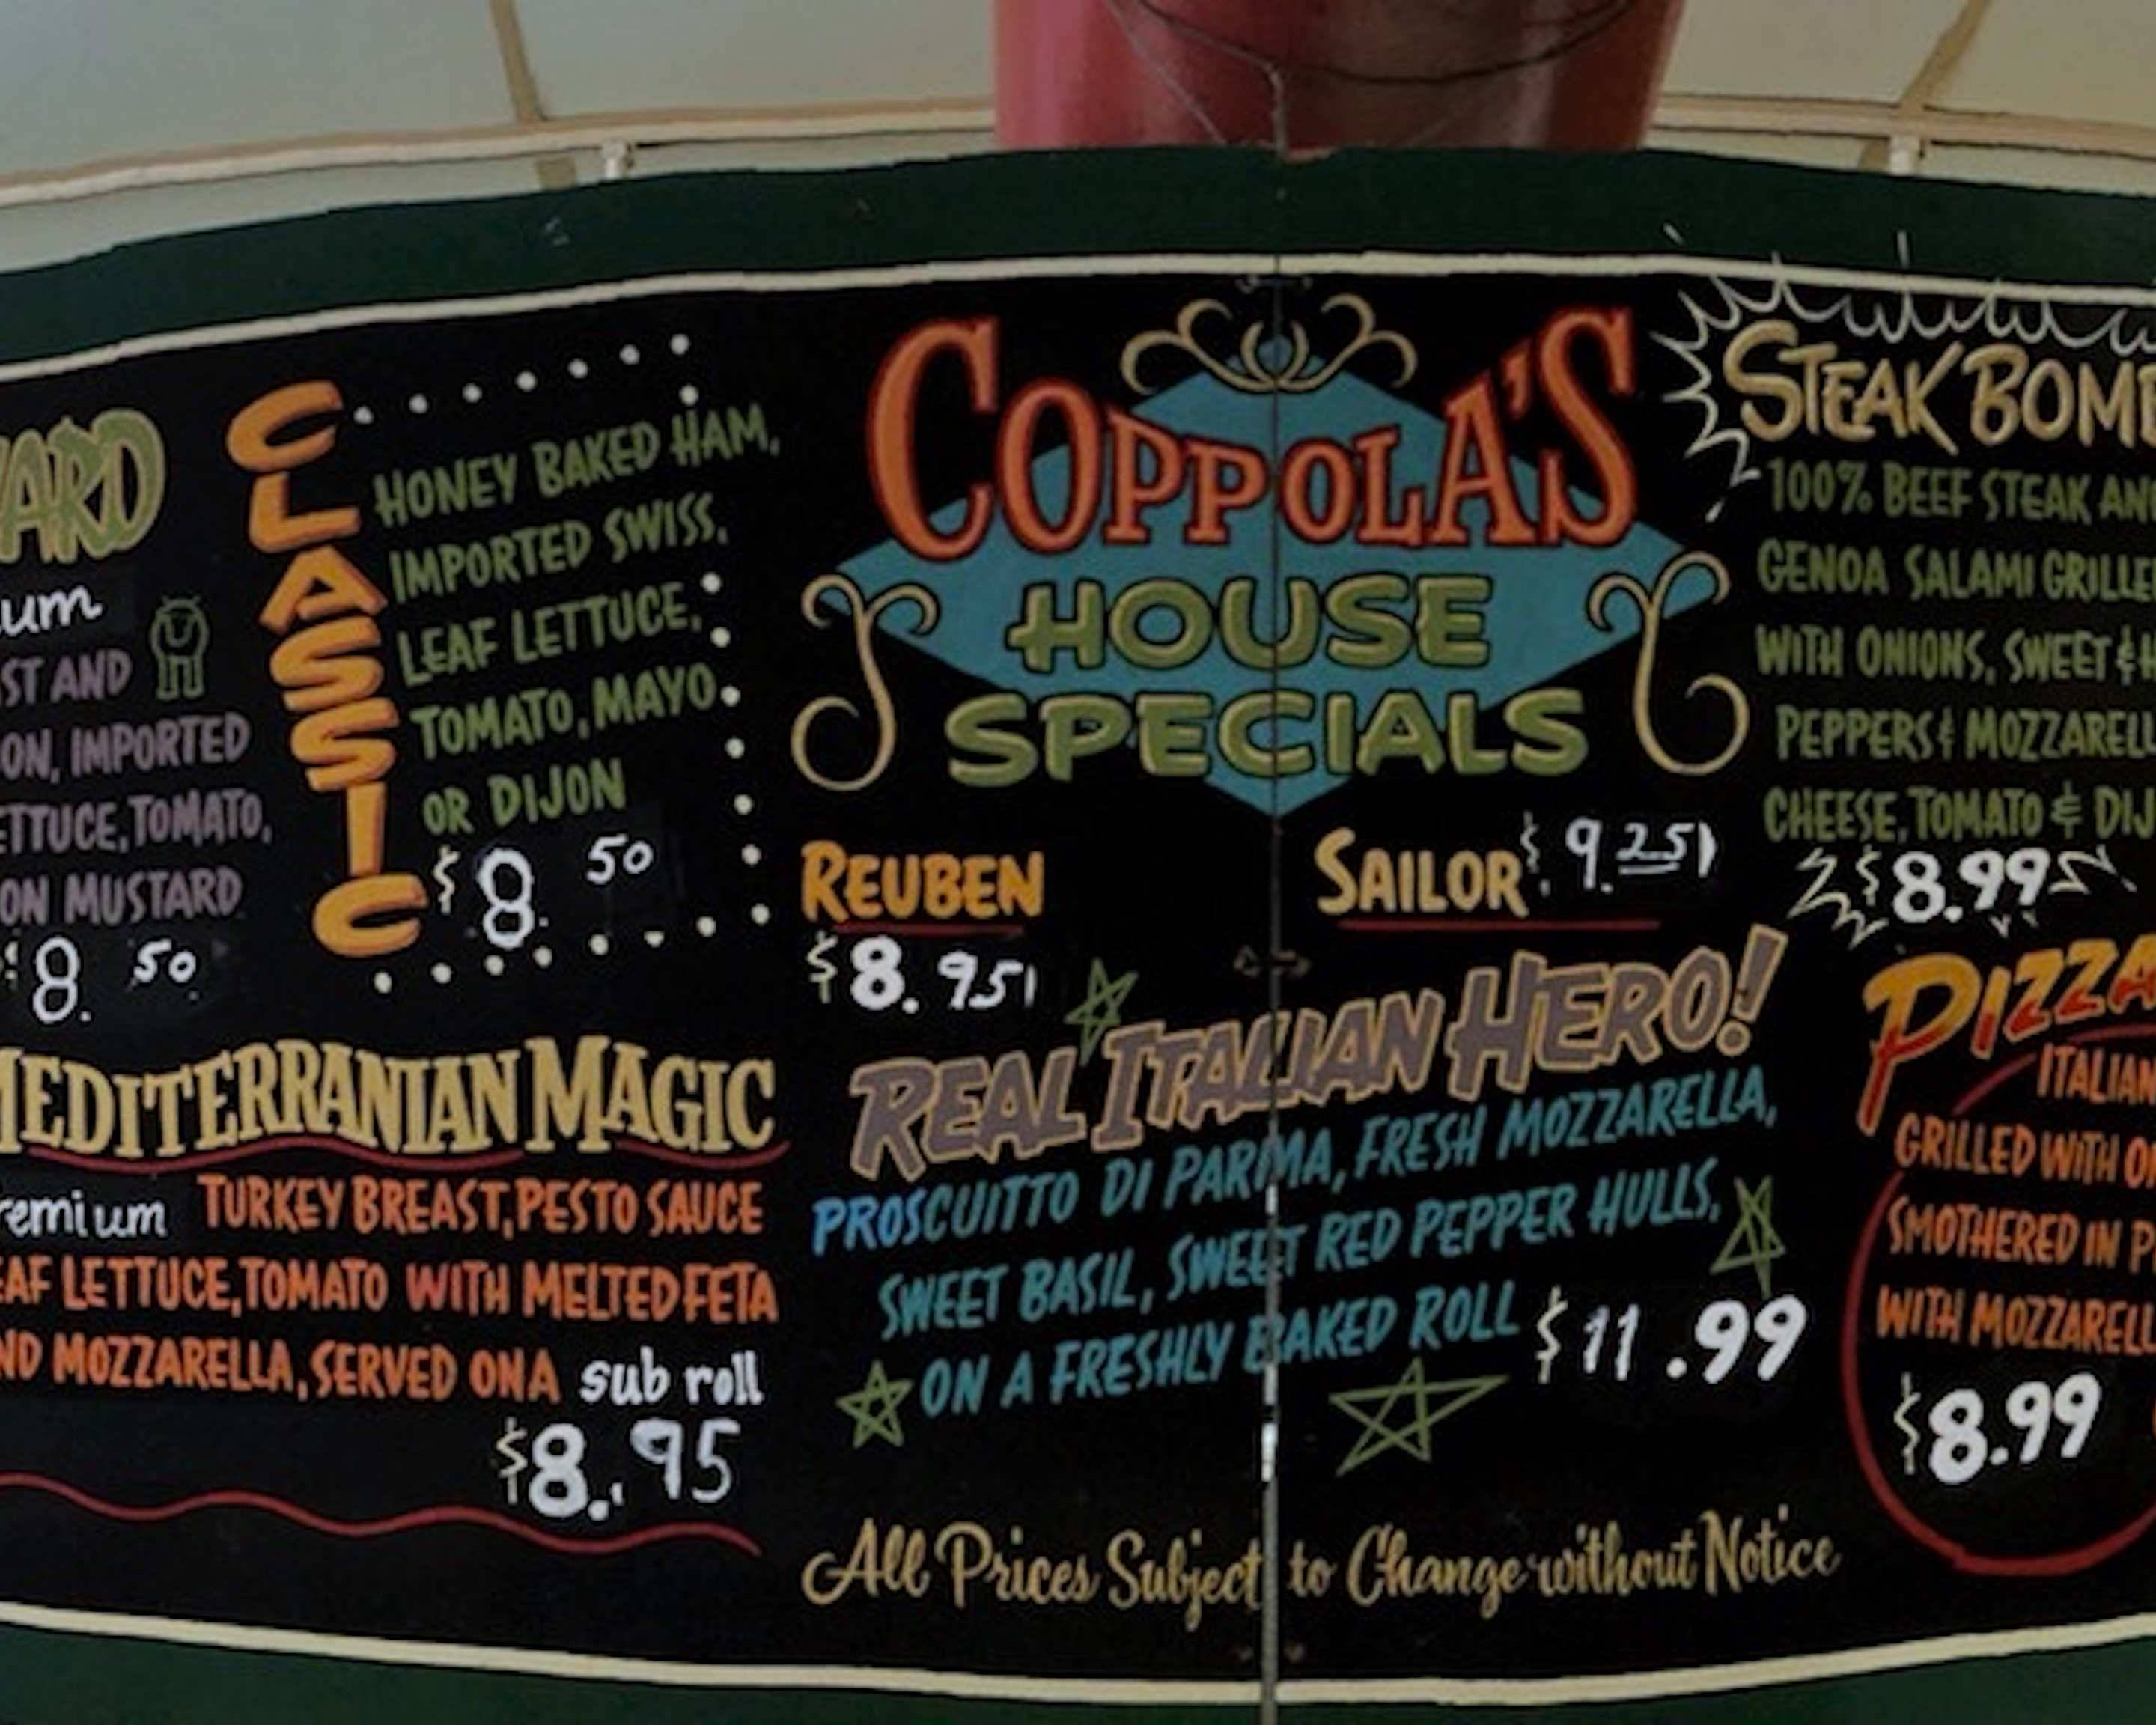 ARD
um
ST AND
ON, IMPORTED
ETTUCE, TOMATO,
ON MUSTARD
$8.50
CLASSIC
HONEY BAKED HAM,
IMPORTED SWISS,
LEAF LETTUCE,
TOMATO, MAYO
OR DIJON
$8.50
MEDITERRANIAN MAGIC
remium TURKEY BREAST, PESTO SAUCE
EAF LETTUCE, TOMATO WITH MELTED FETA
ND MOZZARELLA, SERVED ON A sub roll
$8.95
COPPOLA'S
HOUSE
SPECIALS
REUBEN
$8.95
SAILOR $9.25
REAL ITALIAN HERO!
PROSCUITTO DI PARMA, FRESH MOZZARELLA,
SWEET BASIL, SWEET RED PEPPER HULLS,
ON A FRESHLY BAKED ROLL $11.99
All Prices Subject to Change without Notice
STEAK BOMB
100% BEEF STEAK AN
GENOA SALAMI GRILLE
WITH ONIONS, SWEET & H
PEPPERS & MOZZARELL
CHEESE, TOMATO & DIJ
$8.99
PIZZA
ITALIAN
GRILLED WITH ON
SMOTHERED IN P
WITH MOZZARELL
$8.99